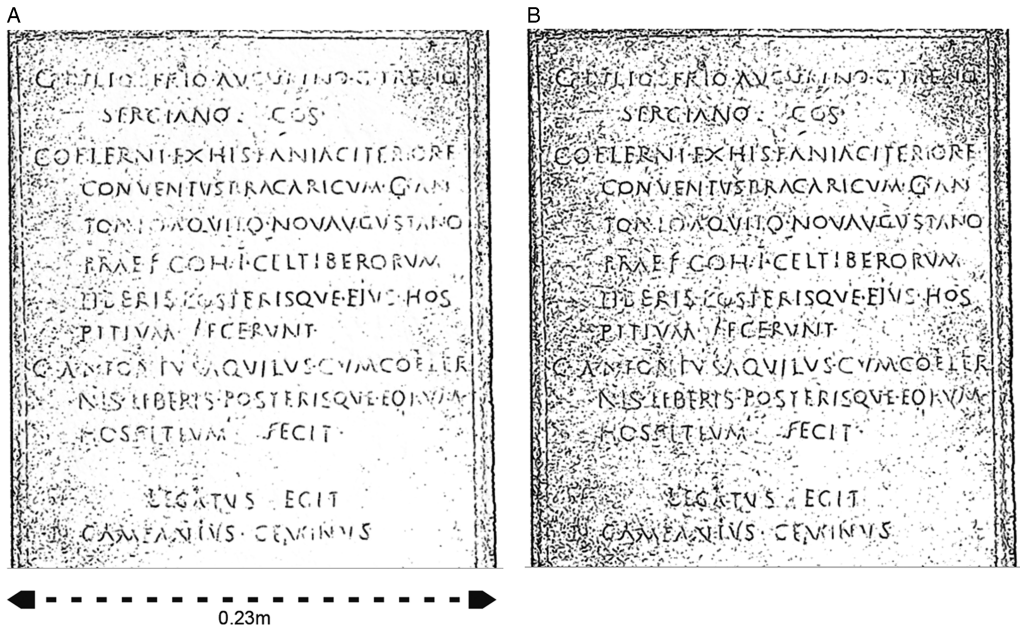 A
AVGVRINO·G·TREBIO
SERGIANO· COS·
COELERNI·EX HISPANIA CITERIORE
CONVENTVS BRACARI CVM·G·AN
TONIO AQVILO·NOVAVGVSTANO
PRAEF COH·I·CELTIBERORVM
LIBERIS POSTERISQVE·EIVS·HOS
PITIVM FECERVNT·
G·ANTONIVS AQVILVS·CVM COELER
NIS LIBERIS·POSTERISQVE·EORVM
HOSPITIVM FECIT·
LEGATVS EGIT
CAMPANIVS·GEMINVS
B
AVGVRINO·G·TREBIO
SERGIANO· COS·
COELERNI·EX HISPANIA CITERIORE
CONVENTVS BRACARI CVM·G·AN
TONIO AQVILO·NOVAVGVSTANO
PRAEF COH·I·CELTIBERORVM
LIBERIS POSTERISQVE·EIVS·HOS
PITIVM FECERVNT·
G·ANTONIVS AQVILVS·CVM COELER
NIS LIBERIS·POSTERISQVE·EORVM
HOSPITIVM FECIT·
LEGATVS EGIT
CAMPANIVS·GEMINVS
0.23m